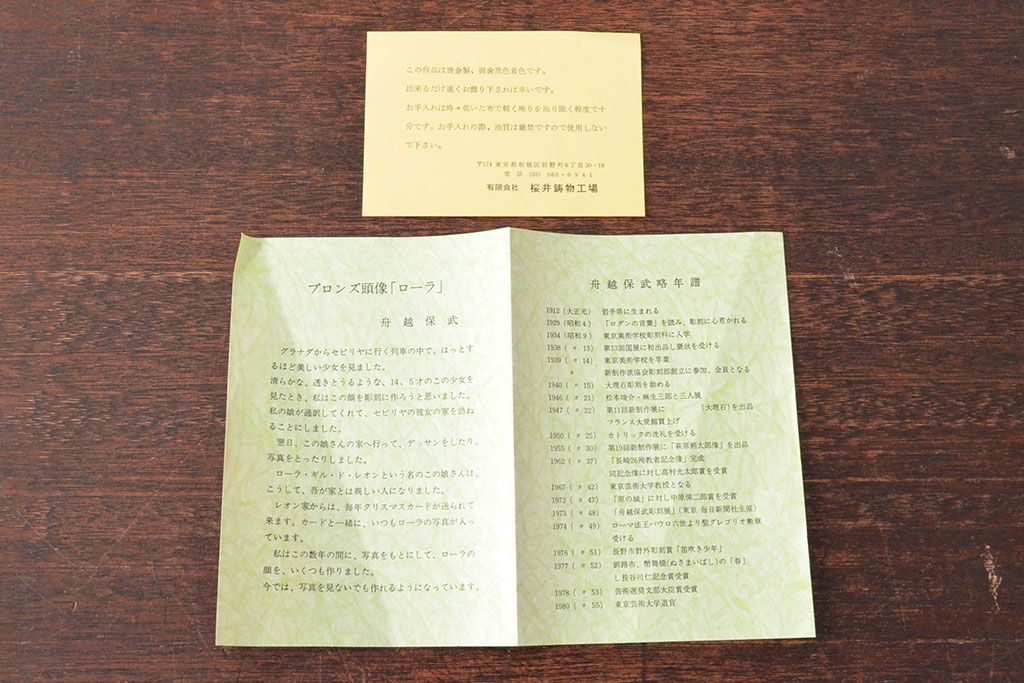 この作品は唐金製、御歯黒色着色です。
出来るだけ速くお飾り下されば幸いです。
お手入れは時々乾いた布で軽く埃りを取り除く程度で十
分です。お手入れの際、油質は厳禁ですので使用しない
で下さい。
〒174 東京都板橋区前野町6丁目30-18
電話 (03) 960-0941
有限会社 桜井鋳物工場
ブロンズ頭像「ローラ」
舟越保武
グラナダからセビリヤに行く列車の中で、はっとす
るほど美しい少女を見ました。
清らかな、透きとうるような、14、5才のこの少女を
見たとき、私はこの顔を彫刻に作ろうと思いました。
私の娘が通訳してくれて、セビリヤの彼女の家を訪ね
ることにしました。
翌日、この娘さんの家へ行って、デッサンをしたり、
写真をとったりしました。
ローラ・ギル・ド・レオンという名のこの娘さんは、
こうして、吾が家とは親しい人になりました。
レオン家からは、毎年クリスマスカードが送られて
来ます。カードと一緒に、いつもローラの写真が入っ
ています。
私はこの数年の間に、写真をもとにして、ローラの
顔を、いくつも作りました。
今では、写真を見ないでも作れるようになっています。
舟越保武略年譜
1912 (大正元) 岩手県に生まれる
1929 (昭和4) 「ロダンの言葉」を読み、彫刻に心惹かれる
1934 (昭和9) 東京美術学校彫刻科に入学
1938 (〃 13) 第13回国展に初出品し褒状を受ける
1939 (〃 14) 東京美術学校を卒業
〃 新制作派協会彫刻部創立に参加、会員となる
1940 (〃 15) 大理石彫刻を始める
1946 (〃 21) 松本竣介・麻生三郎と三人展
1947 (〃 22) 第11回新制作展に (大理石)を出品
フランス大使館買上げ
1950 (〃 25) カトリックの洗礼を受ける
1955 (〃 30) 第19回新制作展に「萩原朔太郎像」を出品
1962 (〃 37) 「長崎26殉教者記念像」完成
同記念像に対し高村光太郎賞を受賞
1967 (〃 42) 東京芸術大学教授となる
1972 (〃 47) 「原の城」に対し中原悌二郎賞を受賞
1973 (〃 48) 「舟越保武彫刻展」(東京 毎日新聞社主催)
1974 (〃 49) ローマ法王パウロ六世より聖グレゴリオ勲章
受ける
1976 (〃 51) 長野市野外彫刻賞「笛吹き少年」
1977 (〃 52) 釧路市、幣舞橋(ぬさまいばし)の「春」
し長谷川仁記念賞受賞
1978 (〃 53) 芸術選奨文部大臣賞受賞
1980 (〃 55) 東京芸術大学退官